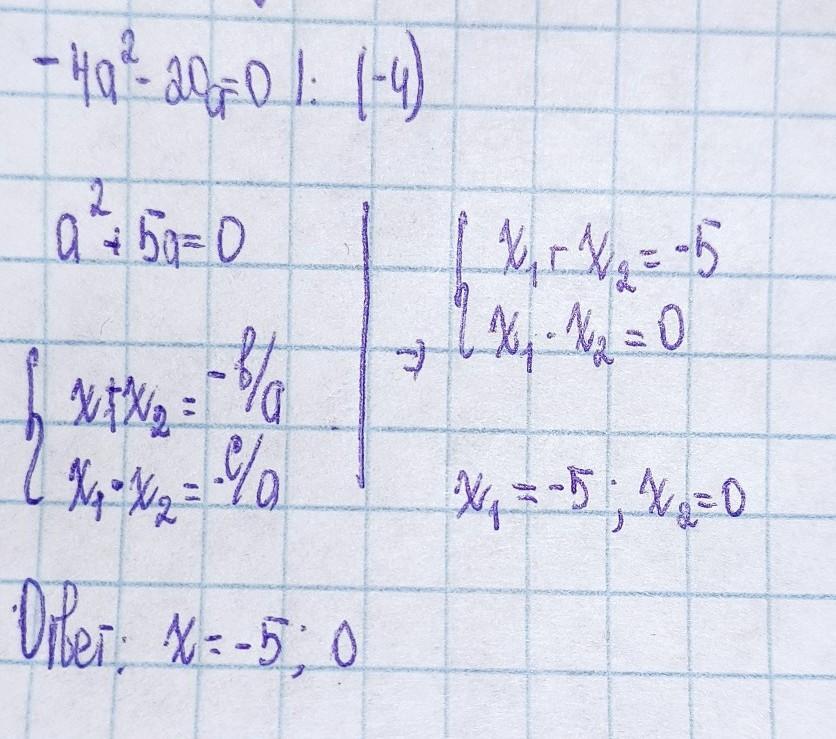 -4a² - 20a=0 |: (-4)
a² + 5a=0
{ x₁+x₂ = -b/a
x₁·x₂ = c/a
⇒ { x₁+x₂ = -5
x₁·x₂ = 0
x₁ = -5; x₂=0
Ответ: x = -5; 0